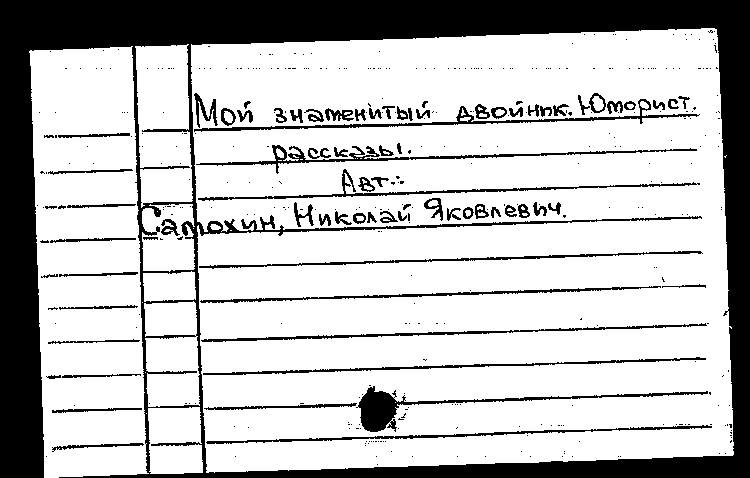 Мой знаменитый двойник. Юморист.
рассказы.
Авт.:
Самохин, Николай Яковлевич.